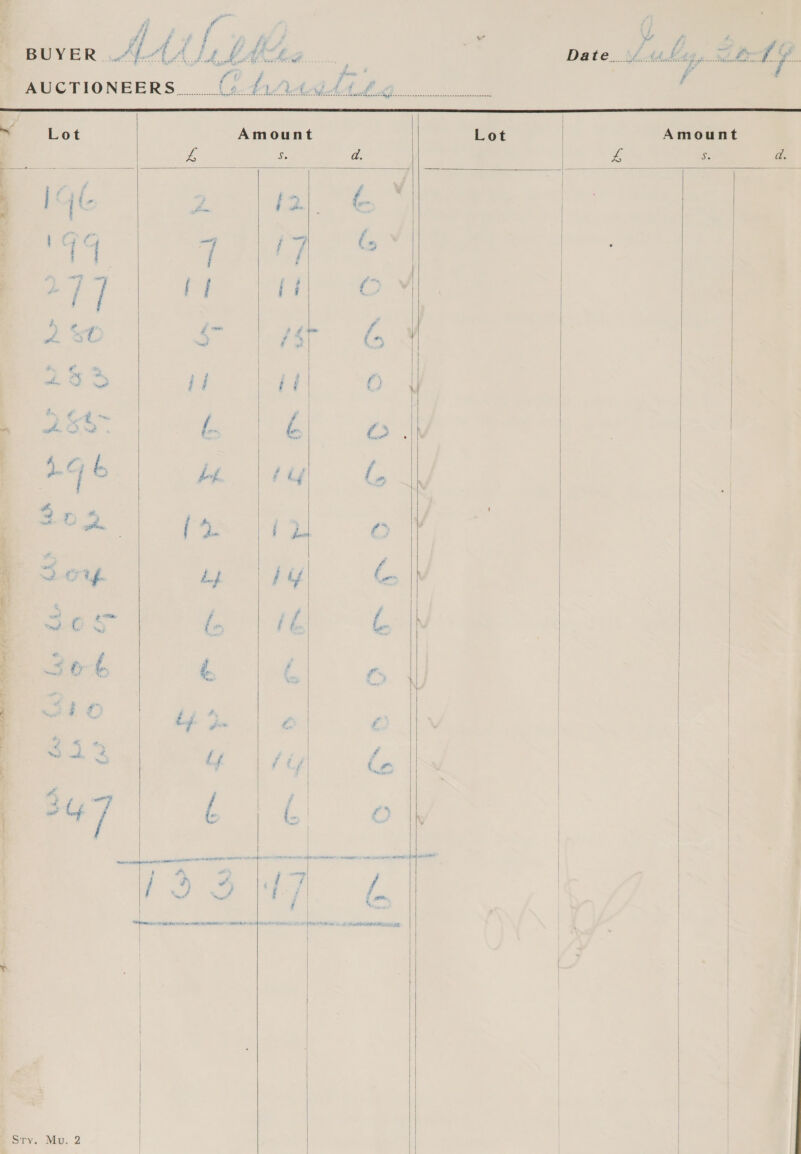 BUYER A W Wilkes Date July, 20 19
AUCTIONEERS Christies
Lot Amount Lot Amount
£ s. d. £ s. d.
196 2 12 6 ✓
199 7 17 6 ✓
277 11 11 0 ✓
280 5 15 6 ✓
283 11 11 0 ✓
285 6 6 0 ✓
296 4 14 6 ✓
302 12 12 0 ✓
304 4 14 6 ✓
305 6 16 6 ✓
306 6 6 0 ✓
310 42 0 0 ✓
313 4 14 6 ✓
347 6 6 0 ✓
133 17 6
Sty. Mu. 2